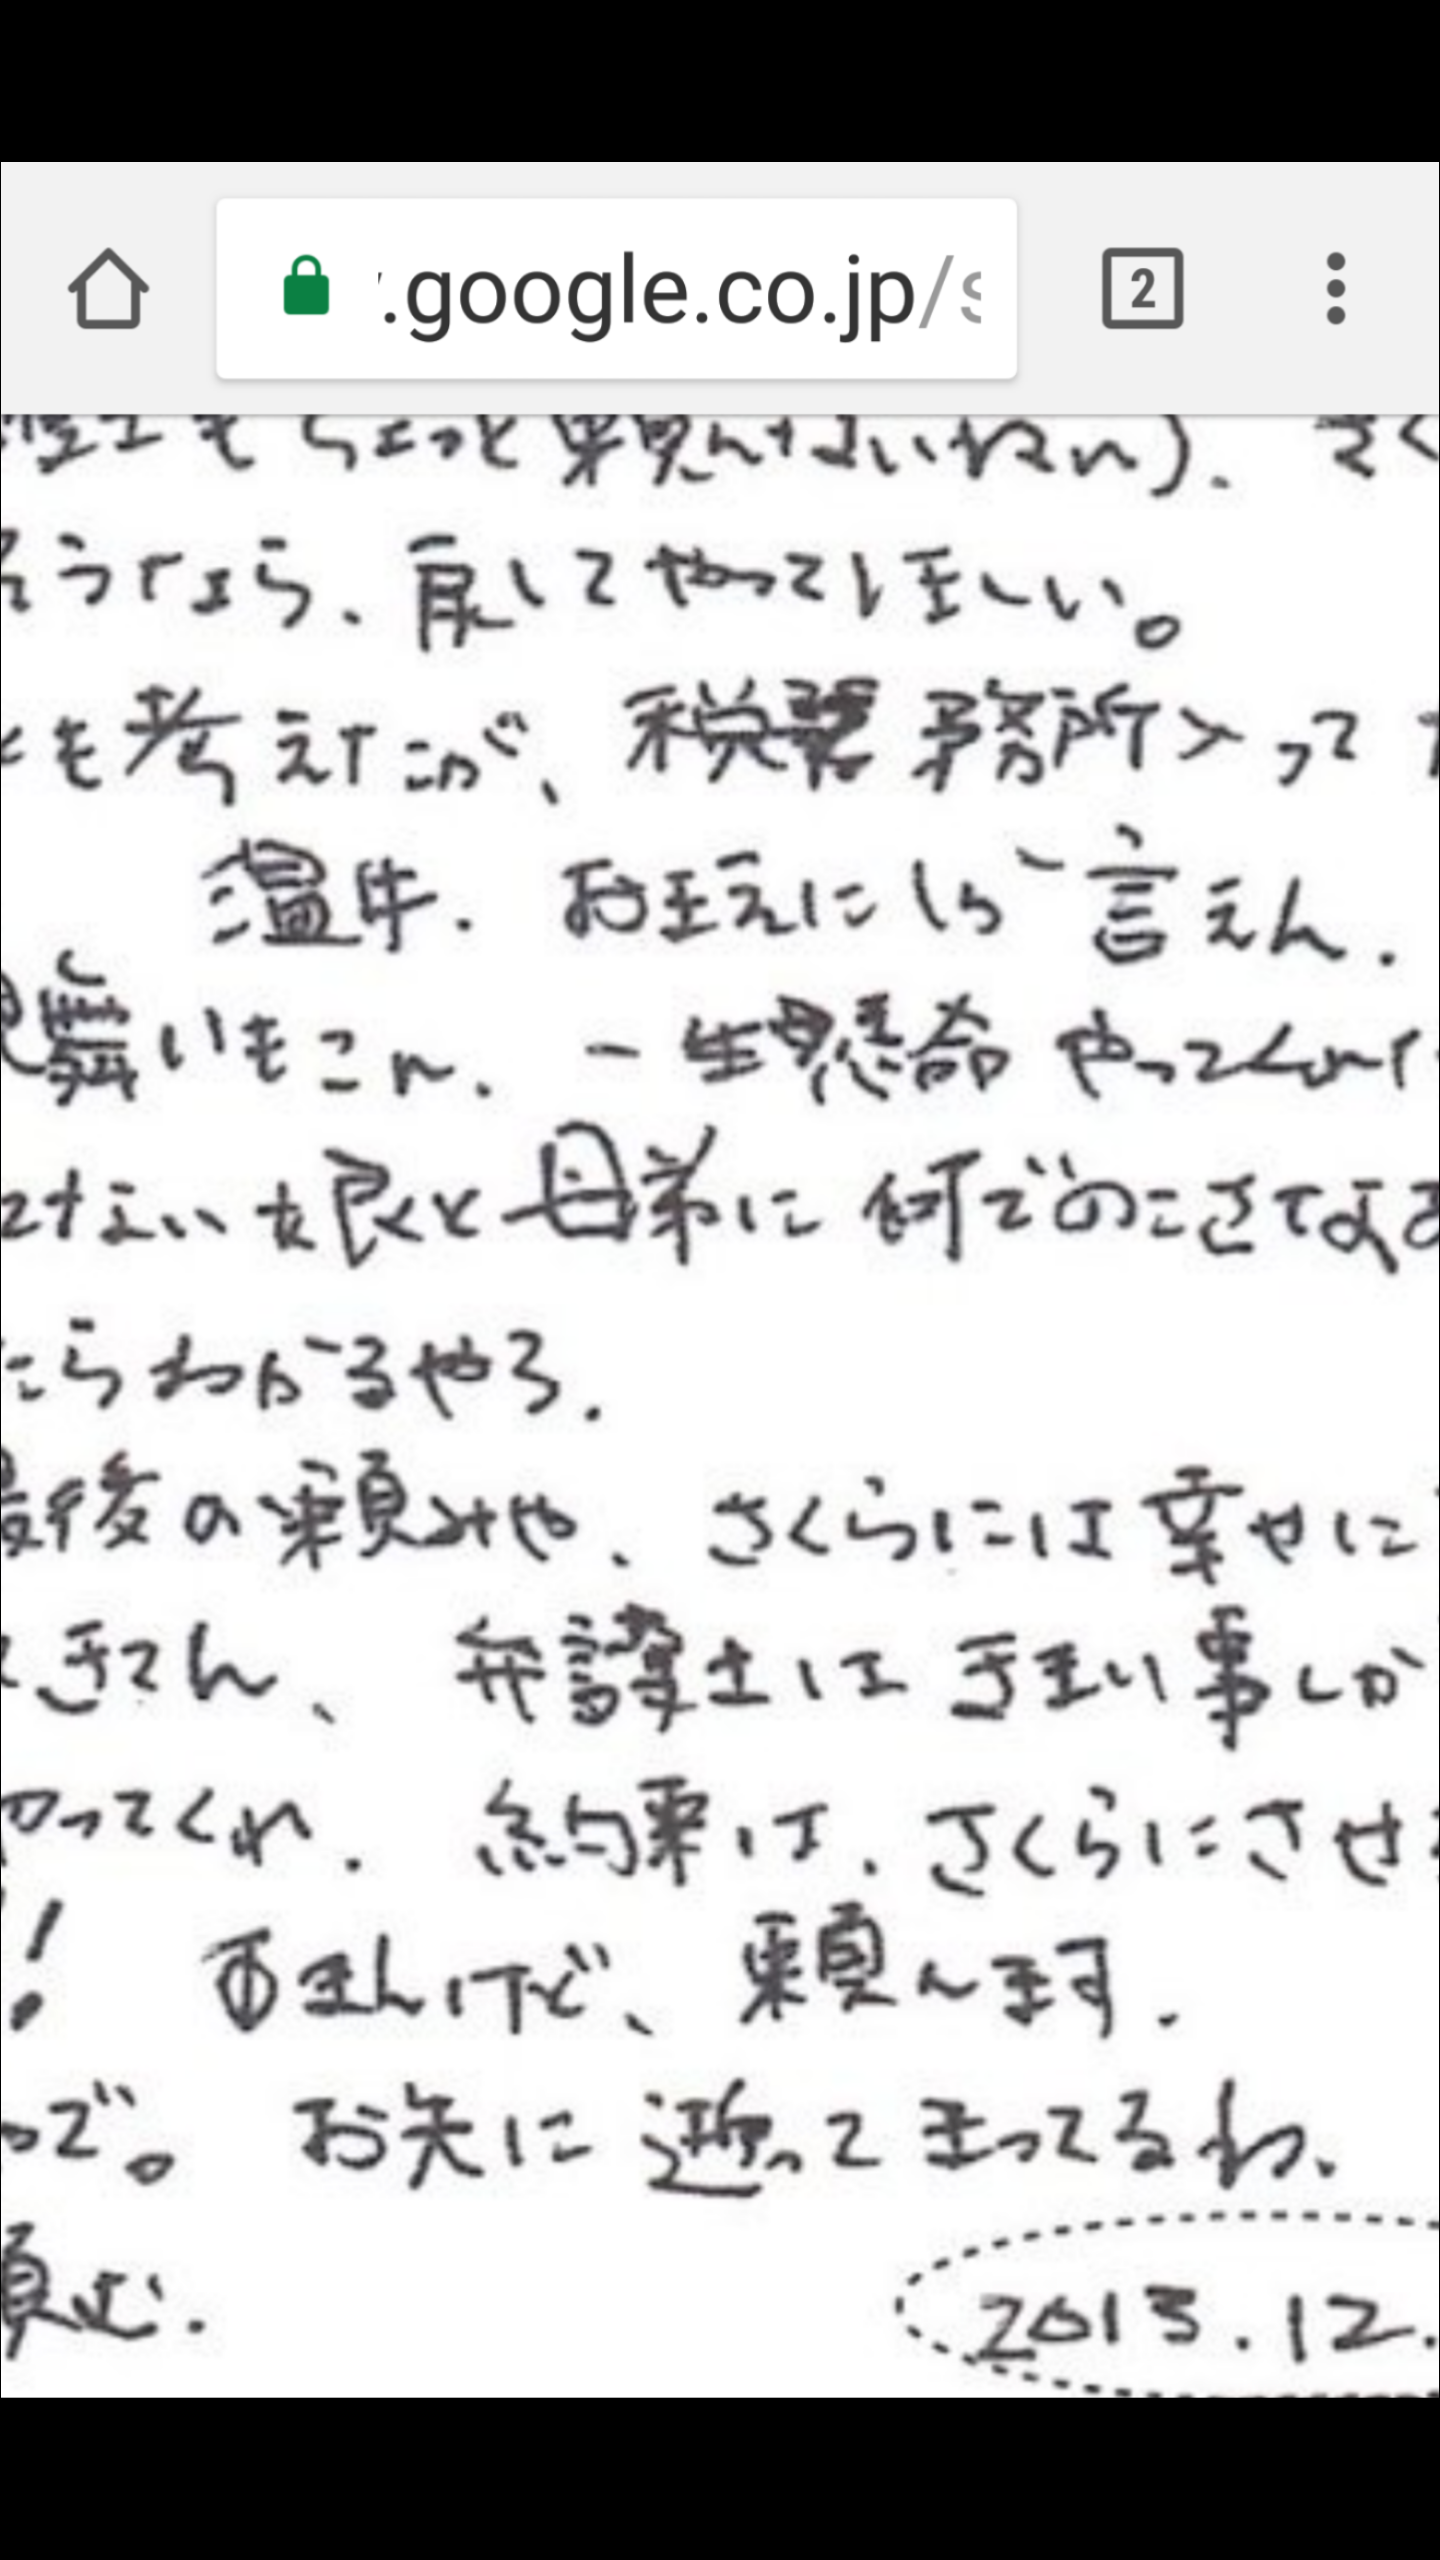 .google.co.jp/s
2
もちょっと頼んないねん). さく
うなら、戻してやってほしい。
とも考えたが、税務所入って
温牛. おまえにしか言えん.
見舞いもこん. 一生懸命やってくれ
てない娘と母弟に何でのこさなあ
たらわかるやろ.
最後の頼みや、さくらには幸せに
きてん、弁護士はうまい事しか
やってくれ. 約束は、さくらにさせ
! まんけど、頼んます.
で。お先に逝ってまってるわ、
頼む.
2013.12.